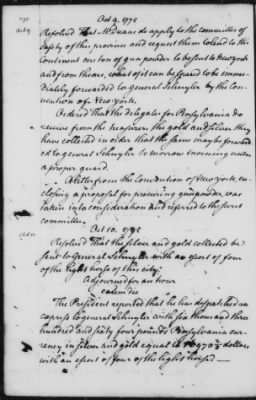 Oct 9. 1775
Resolved That Mr Duane do apply to the committee of
safety of this province and request them to lend to the
Continent one ton of gun powder to be sent to New york
and from thence, what of it can be spared to be imme-
diately forwarded to general Schuyler by the Con-
vention of New-York.
Ordered that the delegates for Pensylvania do
receive from the treasurers the gold and silver they
have collected in order that the same may be forward
ed to general Schuyler to morrow morning under
a proper guard.
A letter from the Convention of New york, en-
closing a proposal for procuring gunpowder was
taken into consideration and referred to the secret
committee.
Oct 10. 1775
Resolved That the silver and gold collected be
sent to General Schuyler with an escort of four
of the light horse of this city.
Adjourned for an hour
eodem die
The President reported that he has despatched an
express to general Schuyler with six thousand three
hundred and sixty four pounds Pensylvania cur-
rency in silver and gold equal to 16970⅔ dollars
with an escort of four of the light horse